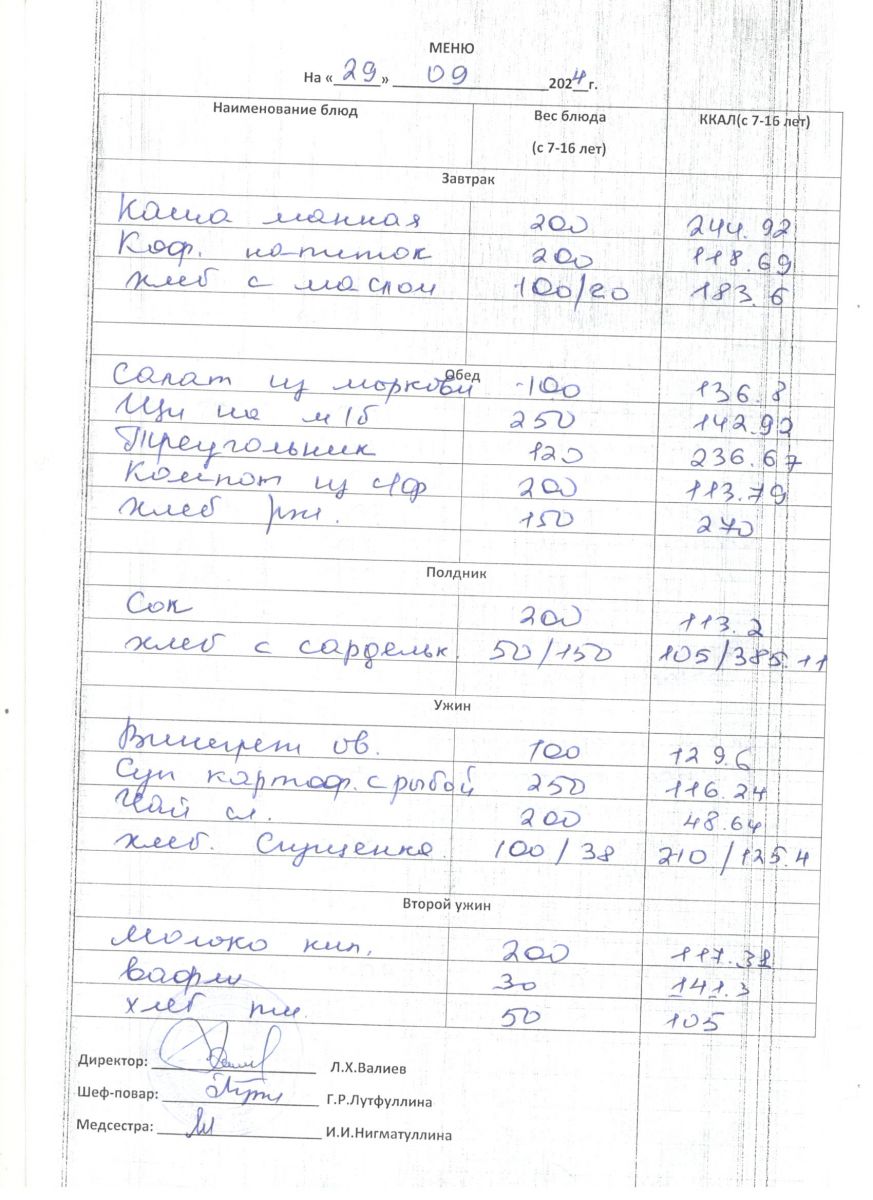 МЕНЮ
На «29» 09 2024г.
Наименование блюд Вес блюда (с 7-16 лет) ККАЛ(с 7-16 лет)
Завтрак
Каша манная 200 244.92
Коф. напиток 200 118.69
хлеб с маслом 100/20 183.6
Обед
Салат из моркови 100 136.8
Щи на м/б 250 142.92
Треугольник 120 236.67
Компот из с/ф 200 113.79
хлеб рж. 150 270
Полдник
Сок 200 113.2
хлеб с сардельк. 50/150 105/385.11
Ужин
Винегрет ов. 100 129.6
Суп картоф. с рыбой 250 116.24
Чай сл. 200 48.64
хлеб. Сгущенка 100/38 210/125.4
Второй ужин
Молоко кип. 200 117.31
вафли 30 141.3
хлеб пш. 50 105
Директор: Л.Х.Валиев
Шеф-повар: Г.Р.Лутфуллина
Медсестра: И.И.Нигматуллина